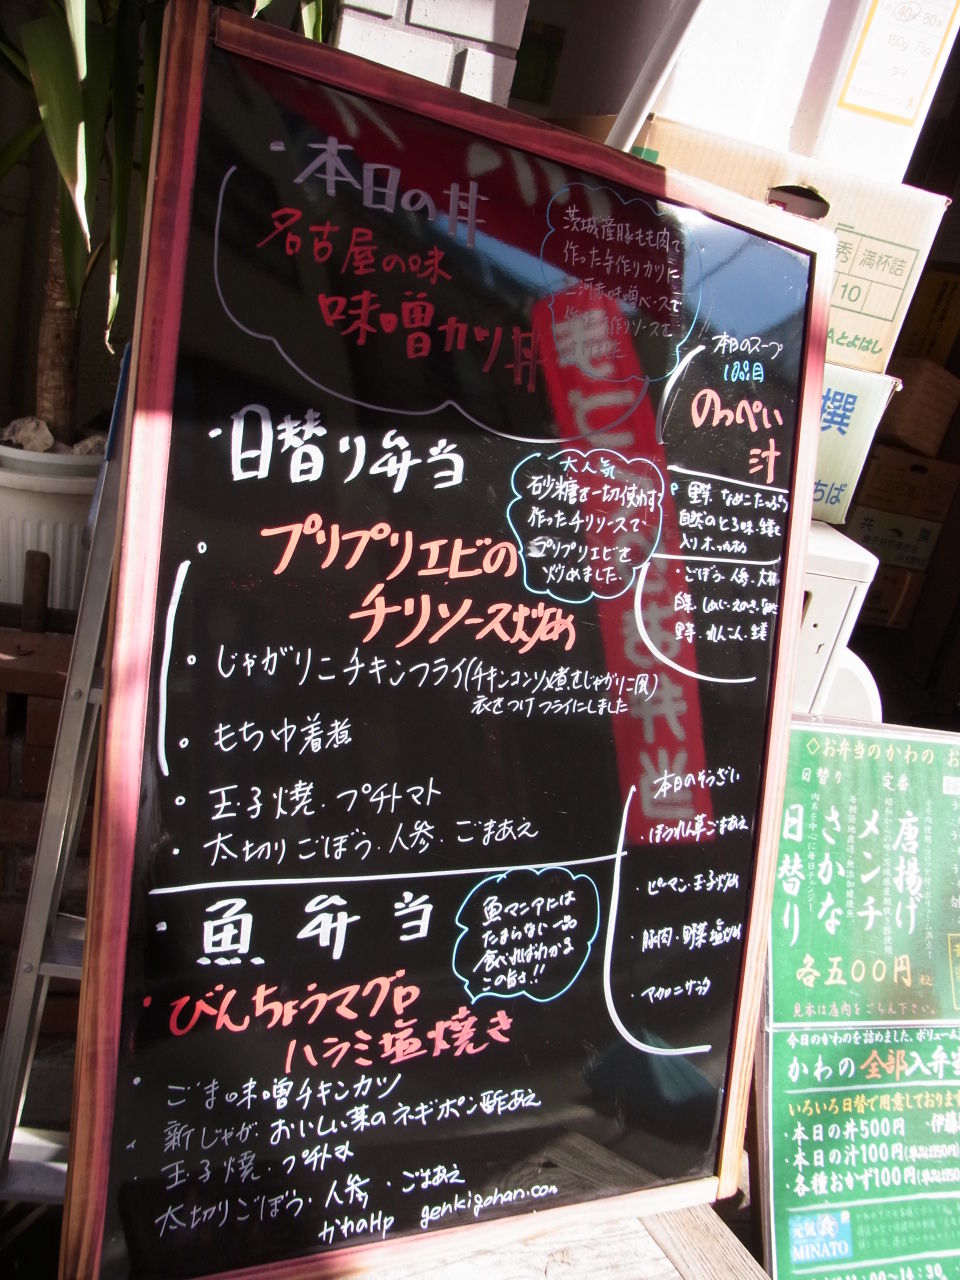 ・本日の丼
名古屋の味
味噌カツ丼
茨城産豚もも肉で
作った手作りカツに
三河赤味噌ベースで
本日のスープ
のっぺい
汁
・日替り弁当
大人気
砂糖を一切使わず
作ったチリソースで
プリプリエビを
炒めました。
プリプリエビの
チリソース炒め
・じゃがりこチキンフライ(チキンコンソメ煮をじゃがりこ風
衣をつけフライにしました)
・もち巾着煮
・玉子焼・プチトマト
・太切りごぼう・人参・ごまあえ
・ごぼう・人参・大根
白菜・しめじ・えのき・なめこ
里芋・れんこん・
本日のそうざい
・ほうれん草ごまあえ
・ピーマン・玉子炒め
・豚肉・野菜塩炒め
・マカロニサラダ
・魚弁当
魚マニアには
たまらない一品
食べればわかる
この旨さ!!
・びんちょうマグロ
ハラミ塩焼き
・ごま味噌チキンカツ
・新じゃが・おいしい菜のネギポン酢あえ
玉子焼・プチトマト
太切りごぼう・人参・ごまあえ
かわHp genkigohan.com
もち
お弁当
40g 80g
150g 75g
秀 満杯詰
10
Aとよはし
撰
ちば
◇お弁当のかわの お
日替り 定番
唐揚げ
メンチ
さかな
日替り
各五〇〇円
見本は店内をごらん下さい。
今日のかわのを詰めました。ボリューム
かわの全部入弁当
いろいろ日替で用意しております
・本日の丼500円 ・伊藤
・本日の汁100円
・各種おかず100円
元気食
MINATO